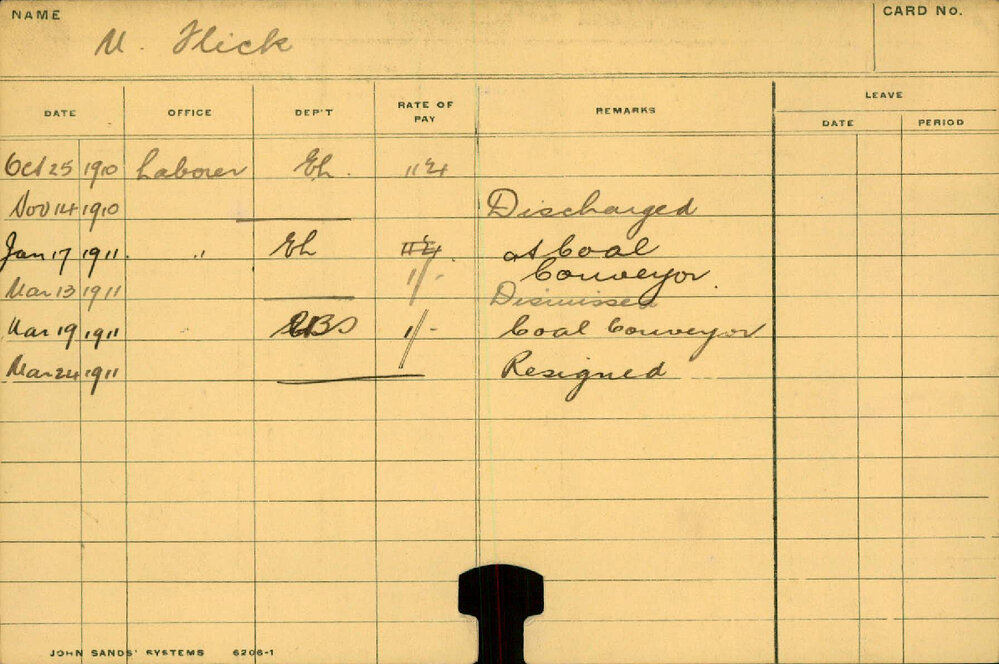 NAME CARD No.
M. Flick
DATE OFFICE DEP'T RATE OF PAY REMARKS LEAVE
DATE PERIOD
Oct 25 1910 Laborer Eh.
Nov 14 1910 Discharged
Jan 17 1911. " Eh at Coal
1/- Conveyor.
Mar 13 1911 Dismissed
Mar 19 1911 1/- Coal Conveyor
Mar 24 1911 Resigned
JOHN SANDS' SYSTEMS 6206-1